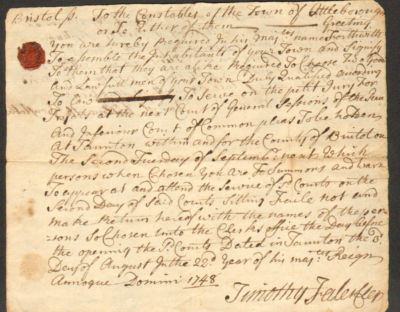 Bristol ss. To the Constables of the Town of Attleborough
or to Either of them Greeting
You are hereby Required In his Majties name Forthwith
To assemble the Inhabitants of your Town and Signify
To them that they are alike Required To Choose Good
and Lawful men of your Town Duly Qualified according
To Law To Serve on the petit Jury For
Tryals at the next Court of General Sessions of the Peace
And Inferiour Court of Common pleas To be holden
At Taunton within and for the County of Bristol on
The Second Tuesday of September next Which
persons when Chosen You Are To Summons and warn
To appear at and attend the Service of sd Courts on the
Second Day of Said Courts Sitting Faile not and
make Return hereof with the names of the per-
sons So Chosen unto the Clerks office the Day before
the opening the sd Courts Dated in Taunton the 6
Day of August In the 22d Year of his majties Reign
Annoque Domini 1748
Timothy Fales Cler